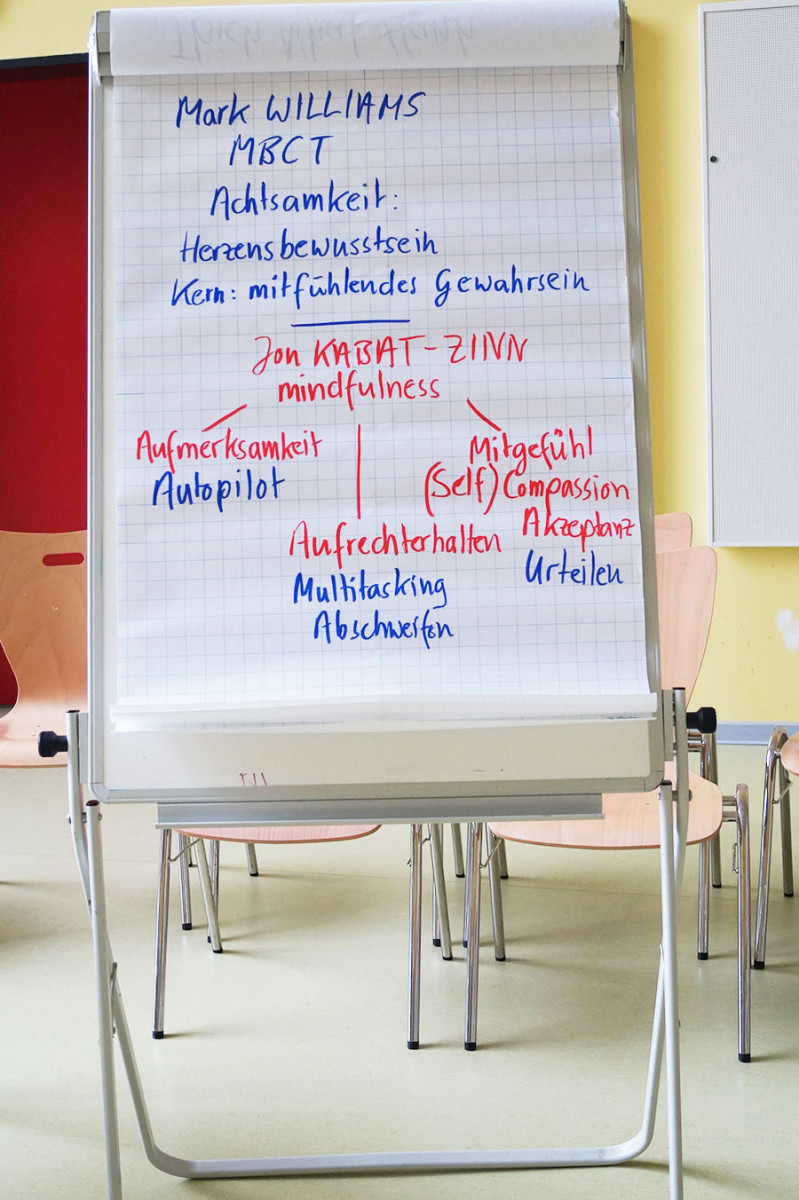 Thich Nhat Hanh
Mark WILLIAMS
MBCT
Achtsamkeit:
Herzensbewusstsein
Kern: mitfühlendes Gewahrsein
Jon KABAT-ZINN
mindfulness
Aufmerksamkeit
Autopilot
Aufrechterhalten
Multitasking
Abschweifen
Mitgefühl
(Self) Compassion
Akzeptanz
Urteilen